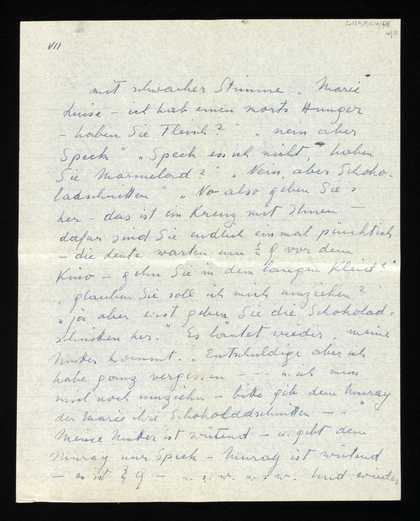 VII
mit schwacher Stimme. „Marie
Luise – ich hab einen mords Hunger
– haben Sie Fleisch?" „nein aber
Speck" „Speck ess ich nicht, haben
Sie Marmelad?" „Nein, aber Schoko-
ladschnitten" „Na also geben Sie's
her – das ist ein Kreuz mit Ihnen –
dafür sind Sie endlich einmal pünktlich
– die Leute warten um ½ 9 vor dem
Kino – gehen Sie in dem langen Kleid?"
„glauben Sie soll ich mich umziehen?"
„ja aber erst geben Sie die Schokolad-
schnitten her." Es läutet wieder meine
Mutter kommt. „Entschuldige aber ich
habe ganz vergessen – – – ich muss
mich noch umziehn – bitte gib dem Murray
die Marie ihre Schokoladschnitten –"
Meine Mutter ist wütend – u. gibt dem
Murray nur Speck – Murray ist wütend
– es ist ¾ 9 – u.s.w. u.s.w. Und wieder